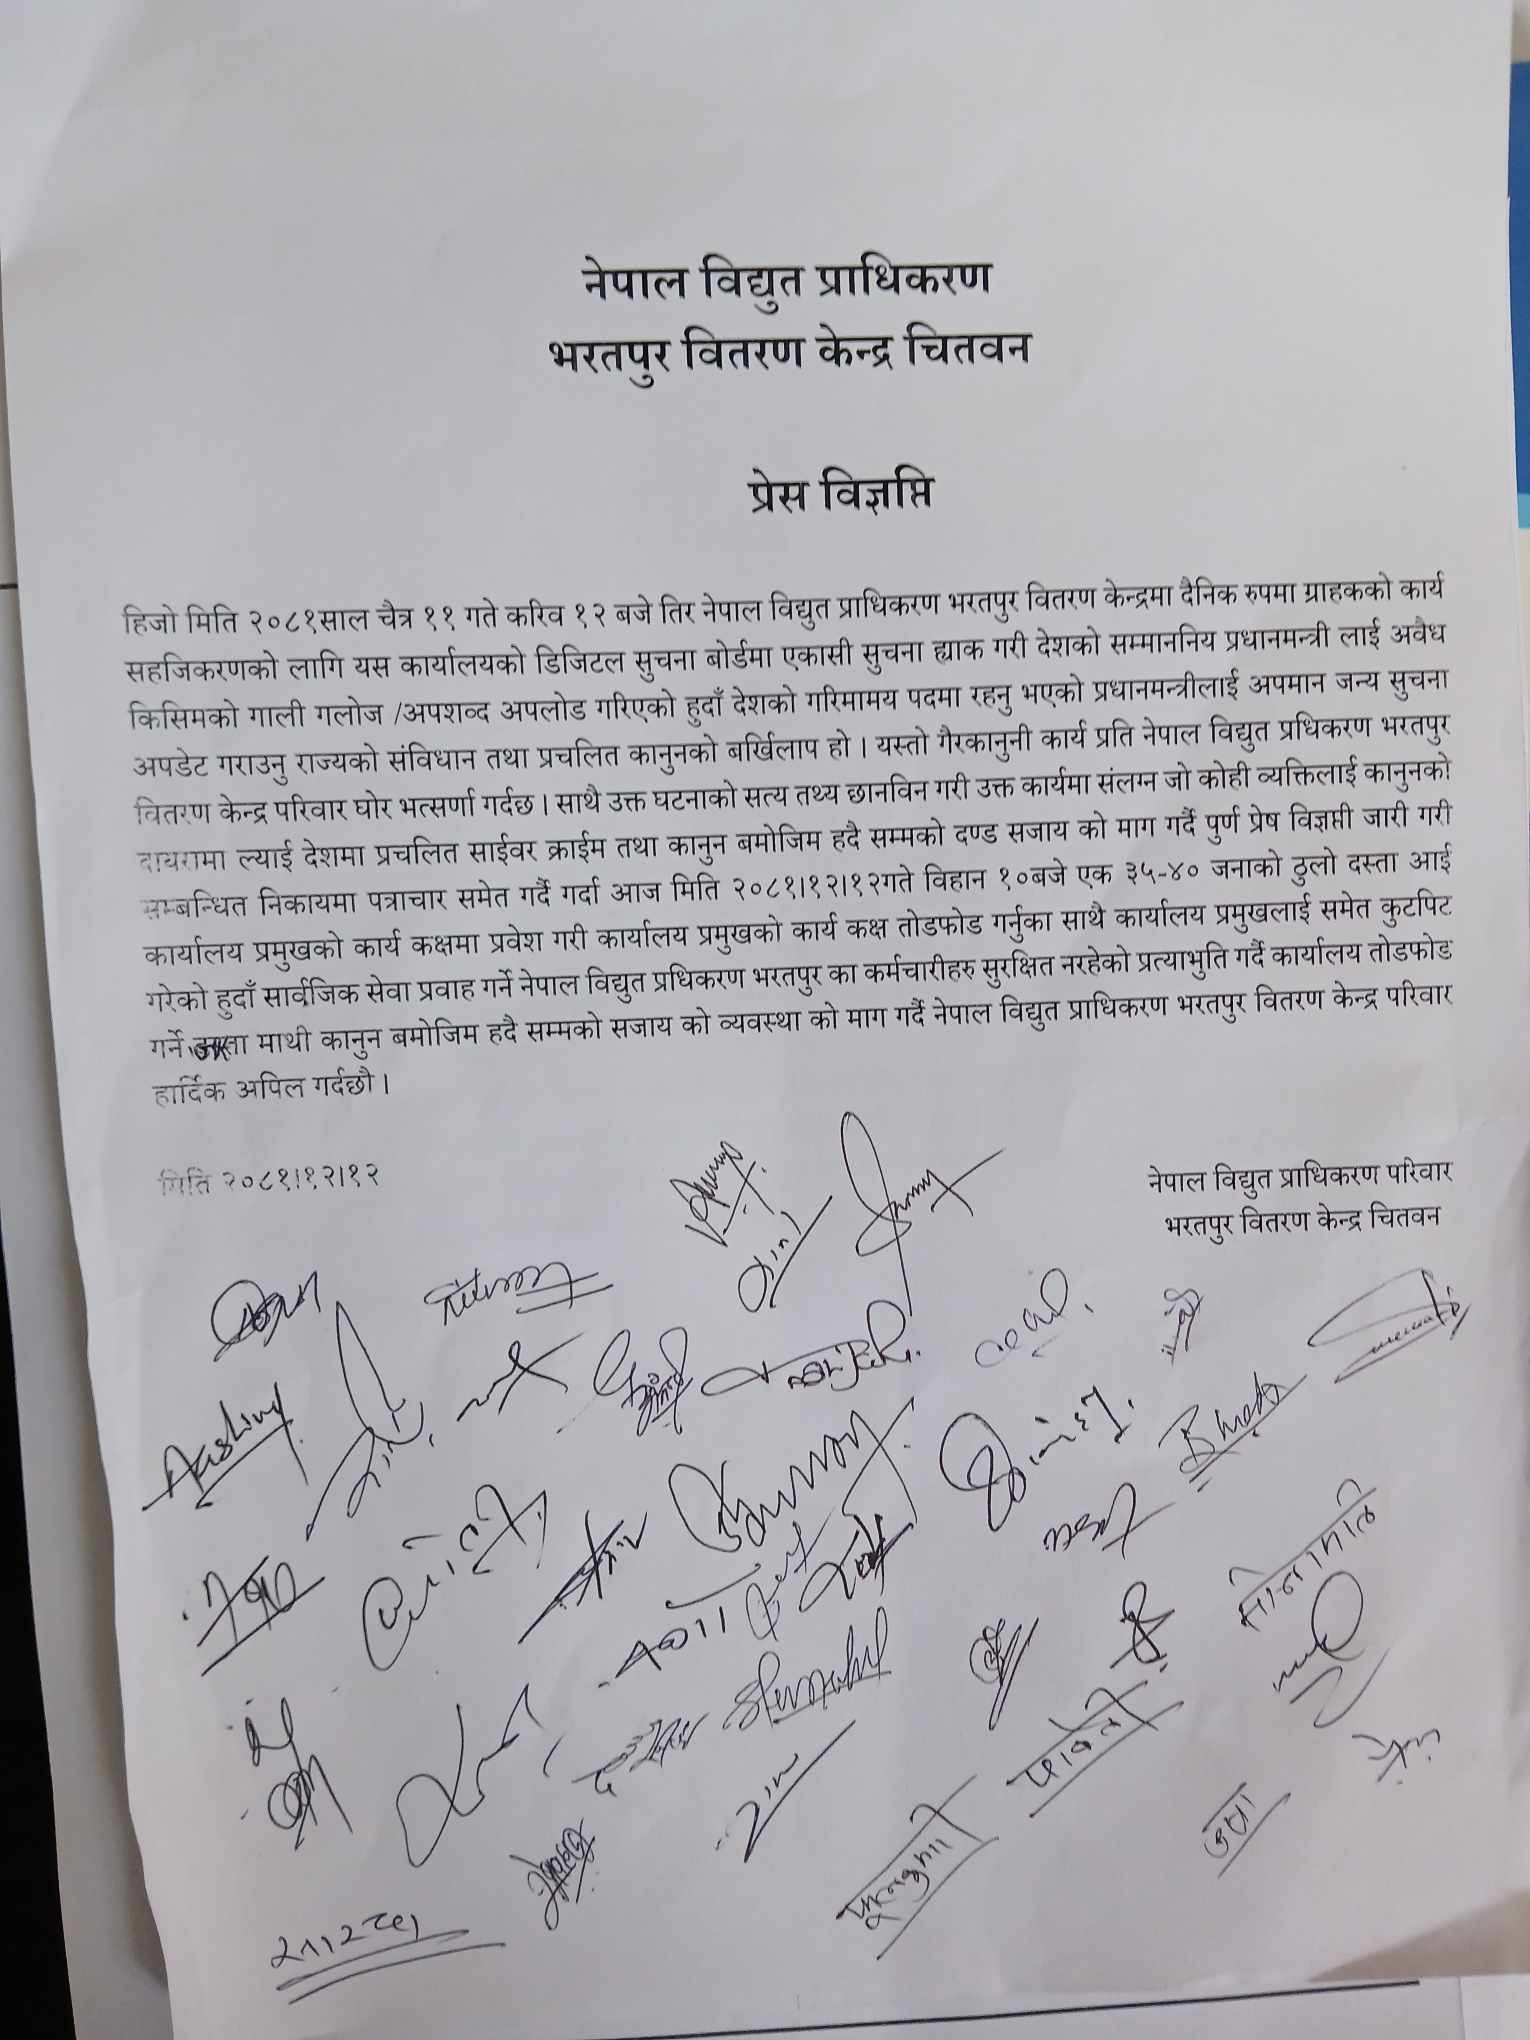 नेपाल विद्युत प्राधिकरण
भरतपुर वितरण केन्द्र चितवन
प्रेस विज्ञप्ति
हिजो मिति २०८१साल चैत्र ११ गते करिव १२ बजे तिर नेपाल विद्युत प्राधिकरण भरतपुर वितरण केन्द्रमा दैनिक रुपमा ग्राहकको कार्य
सहजिकरणको लागि यस कार्यालयको डिजिटल सुचना बोर्डमा एकासी सुचना ह्याक गरी देशको सम्माननिय प्रधानमन्त्री लाई अवैध
किसिमको गाली गलोज /अपशव्द अपलोड गरिएको हुदाँ देशको गरिमामय पदमा रहनु भएको प्रधानमन्त्रीलाई अपमान जन्य सुचना
अपडेट गराउनु राज्यको संविधान तथा प्रचलित कानुनको बर्खिलाप हो । यस्तो गैरकानुनी कार्य प्रति नेपाल विद्युत प्रधिकरण भरतपुर
वितरण केन्द्र परिवार घोर भत्सर्णा गर्दछ । साथै उक्त घटनाको सत्य तथ्य छानविन गरी उक्त कार्यमा संलग्न जो कोही व्यक्तिलाई कानुनको
दायरामा ल्याई देशमा प्रचलित साईवर क्राईम तथा कानुन बमोजिम हदै सम्मको दण्ड सजाय को माग गर्दै पुर्ण प्रेष विज्ञप्ती जारी गरी
सम्बन्धित निकायमा पत्राचार समेत गर्दै गर्दा आज मिति २०८१।१२।१२गते विहान १०बजे एक ३५-४० जनाको ठुलो दस्ता आई
कार्यालय प्रमुखको कार्य कक्षमा प्रवेश गरी कार्यालय प्रमुखको कार्य कक्ष तोडफोड गर्नुका साथै कार्यालय प्रमुखलाई समेत कुटपिट
गरेको हुदाँ सार्वजिक सेवा प्रवाह गर्ने नेपाल विद्युत प्रधिकरण भरतपुर का कर्मचारीहरु सुरक्षित नरहेको प्रत्याभुति गर्दै कार्यालय तोडफोड
गर्ने माथी कानुन बमोजिम हदै सम्मको सजाय को व्यवस्था को माग गर्दै नेपाल विद्युत प्राधिकरण भरतपुर वितरण केन्द्र परिवार
हार्दिक अपिल गर्दछौ ।
मिति २०८१।१२।१२
नेपाल विद्युत प्राधिकरण परिवार
भरतपुर वितरण केन्द्र चितवन
Aashing
पार्वती
फूलकुमारी
उमा